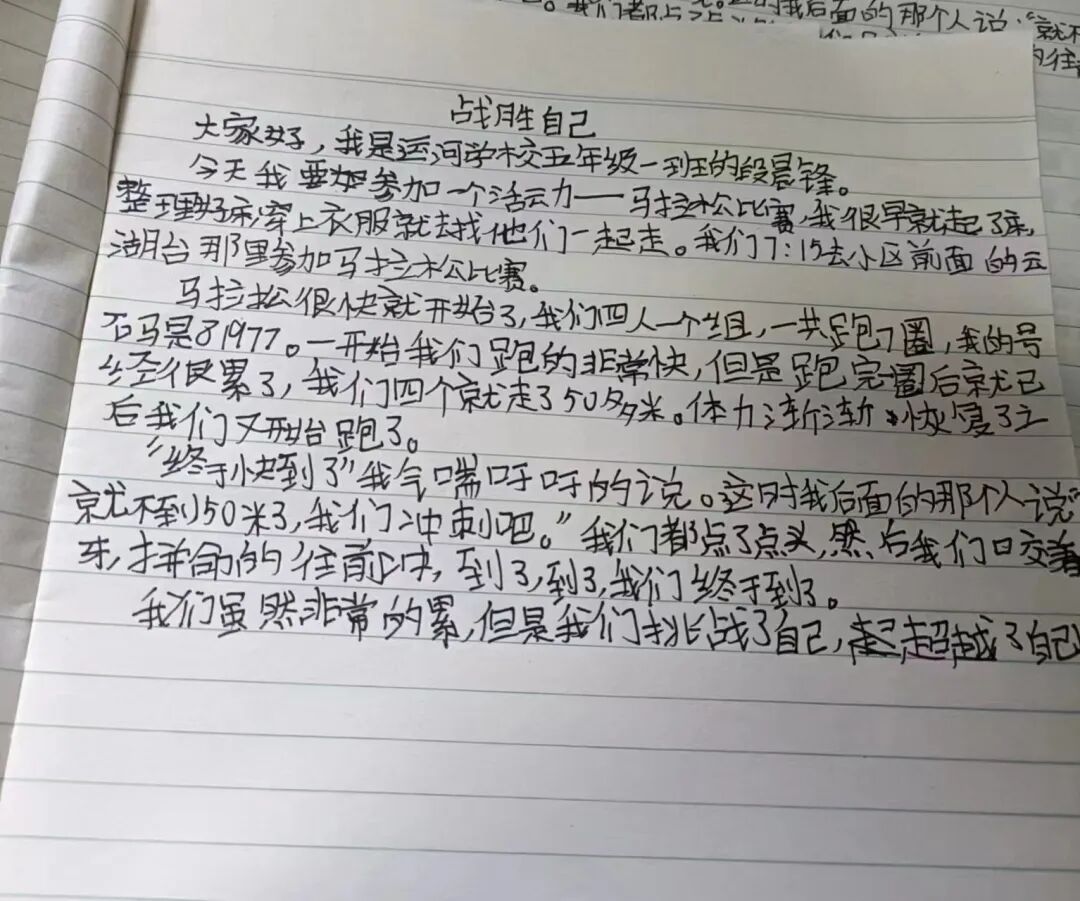 我们都点了点头
我后面的那个人说：“就不
战胜自己
大家好，我是运河学校五年级一班的段晨锋。
今天我要参加一个活动——马拉松比赛，我很早就起了床，
整理好床，穿上衣服就去找他们一起走。我们7:15去小区前面的云
湖台那里参加马拉松比赛。
马拉松很快就开始了，我们四人一个组，一共跑7圈，我的号
码是81977。一开始我们跑的非常快，但是跑完一圈后就已
经很累了，我们四个就走了50多米。体力渐渐恢复了之
后我们又开始跑了。
“终于快到了”我气喘吁吁的说。这时我后面的那个人说“
就不到150米了，我们冲刺吧。”我们都点了点头，然后我们咬着
牙，拼命的往前冲，到了，到了，我们终于到了。
我们虽然非常的累，但是我们挑战了自己，超越了自己